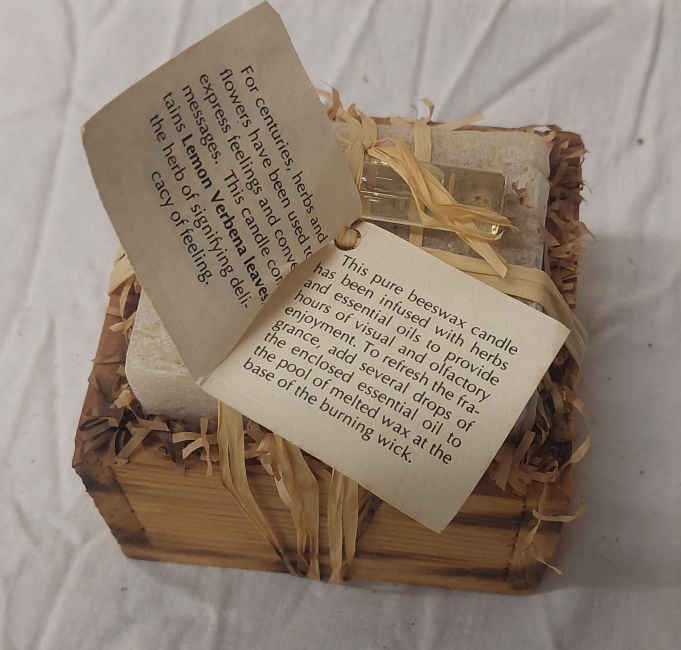 For centuries, herbs and
flowers have been used to
express feelings and conve
messages. This candle con
tains Lemon Verbena leaves
the herb of signifying deli-
cacy of feeling.
This pure beeswax candle
has been infused with herbs
and essential oils to provide
hours of visual and olfactory
enjoyment. To refresh the fra-
grance, add several drops of
the enclosed essential oil to
the pool of melted wax at the
base of the burning wick.